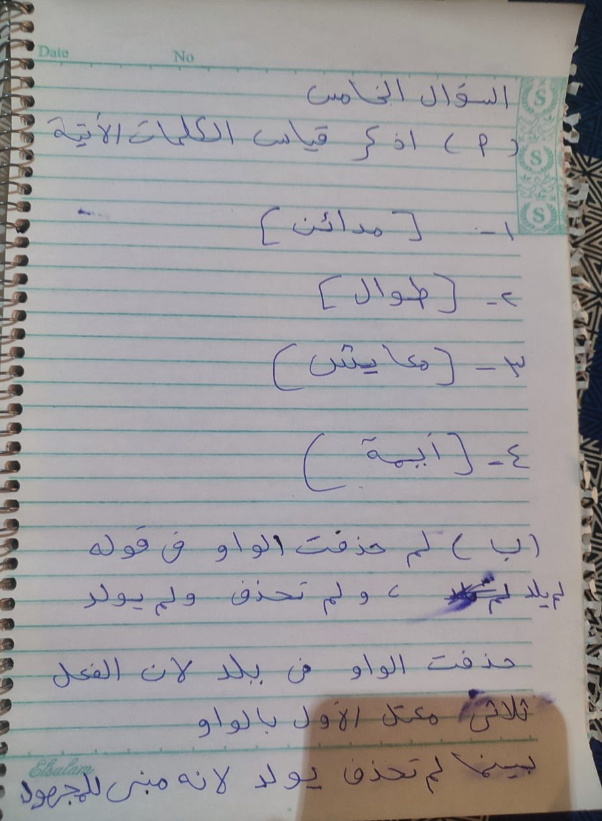 Date No
السؤال الخامس
(أ) اذكر قياس الكلمات الآتية
١- [مدائن]
٢- [طوال]
٣- [معايش)
٤- [أيمة)
(ب) لم حذفت الواو فى قوله
لم يلد ، ولم تحذف ولم يولد
حذفت الواو فى يلد لان الفعل
ثلاثى معتل الأول بالواو
بينما لم تحذف يولد لانه مبنى للمجهول
Elsalam